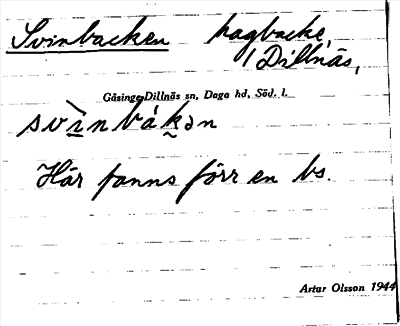 Svinbacken hagbacke,
i Dillnäs,
Gåsinge-Dillnäs sn, Daga hd, Söd. l.
svìnbákən
Här fanns förr en bs.
Artur Olsson 1944